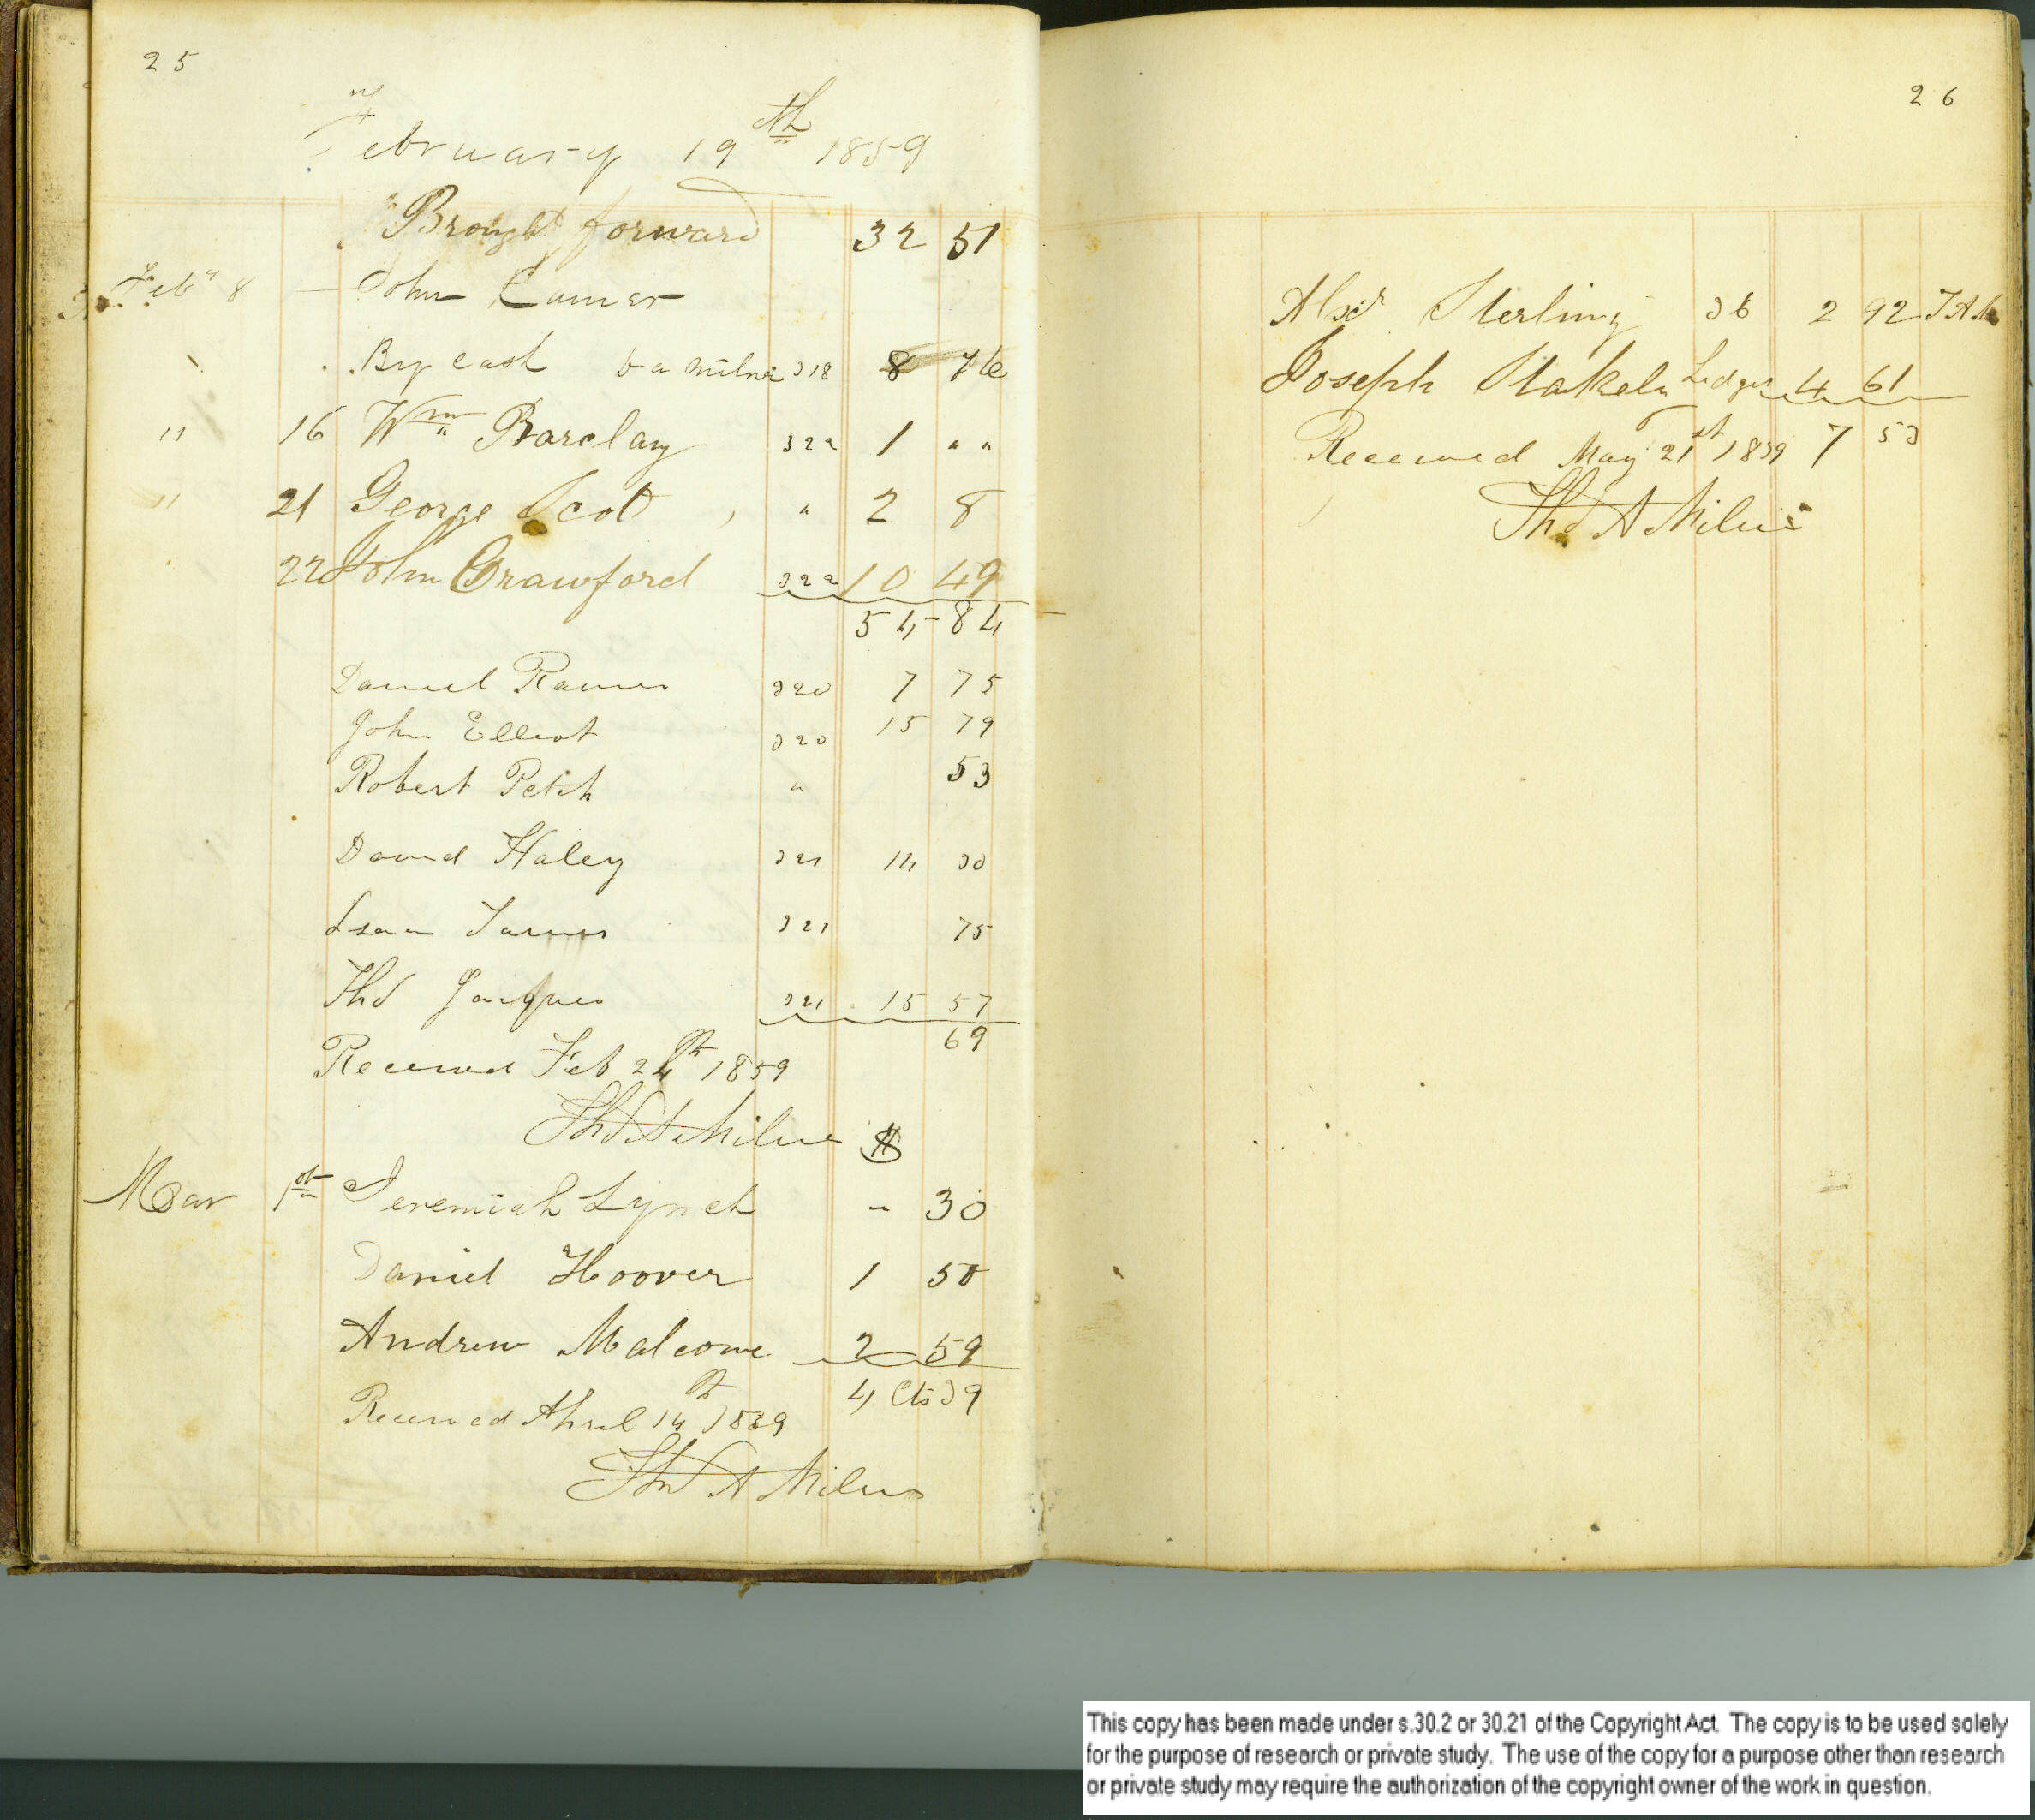 25
February 19th 1859
Brought forward 32 51
Feby 8 John
By cash 318 8 76
" 16 Wm Barclay 322 1 " "
" 21 George Scott " 2 8
22 John Crawford 322 10 49
54 - 84
Daniel 320 7 75
John Elliot 320 15 79
Robert Petch " 53
David Haley 321 14 30
Isaac Turner 321 75
Thos Jacques 321 15 57
69
Received Feb 24th 1859
Thos A Milne $
Mar 1st Jeremiah Lynch - 30
Daniel Hoover 1 50
Andrew Malcome 2 59
4 Cts 39
Received April 14th 1859
Thos A Milne
26
Alexr Sterling 36 2 92 T A M
Joseph Ledger 4 61
Received May 21st 1859 7 53
Thos A Milne
This copy has been made under s.30.2 or 30.21 of the Copyright Act. The copy is to be used solely
for the purpose of research or private study. The use of the copy for a purpose other than research
or private study may require the authorization of the copyright owner of the work in question.